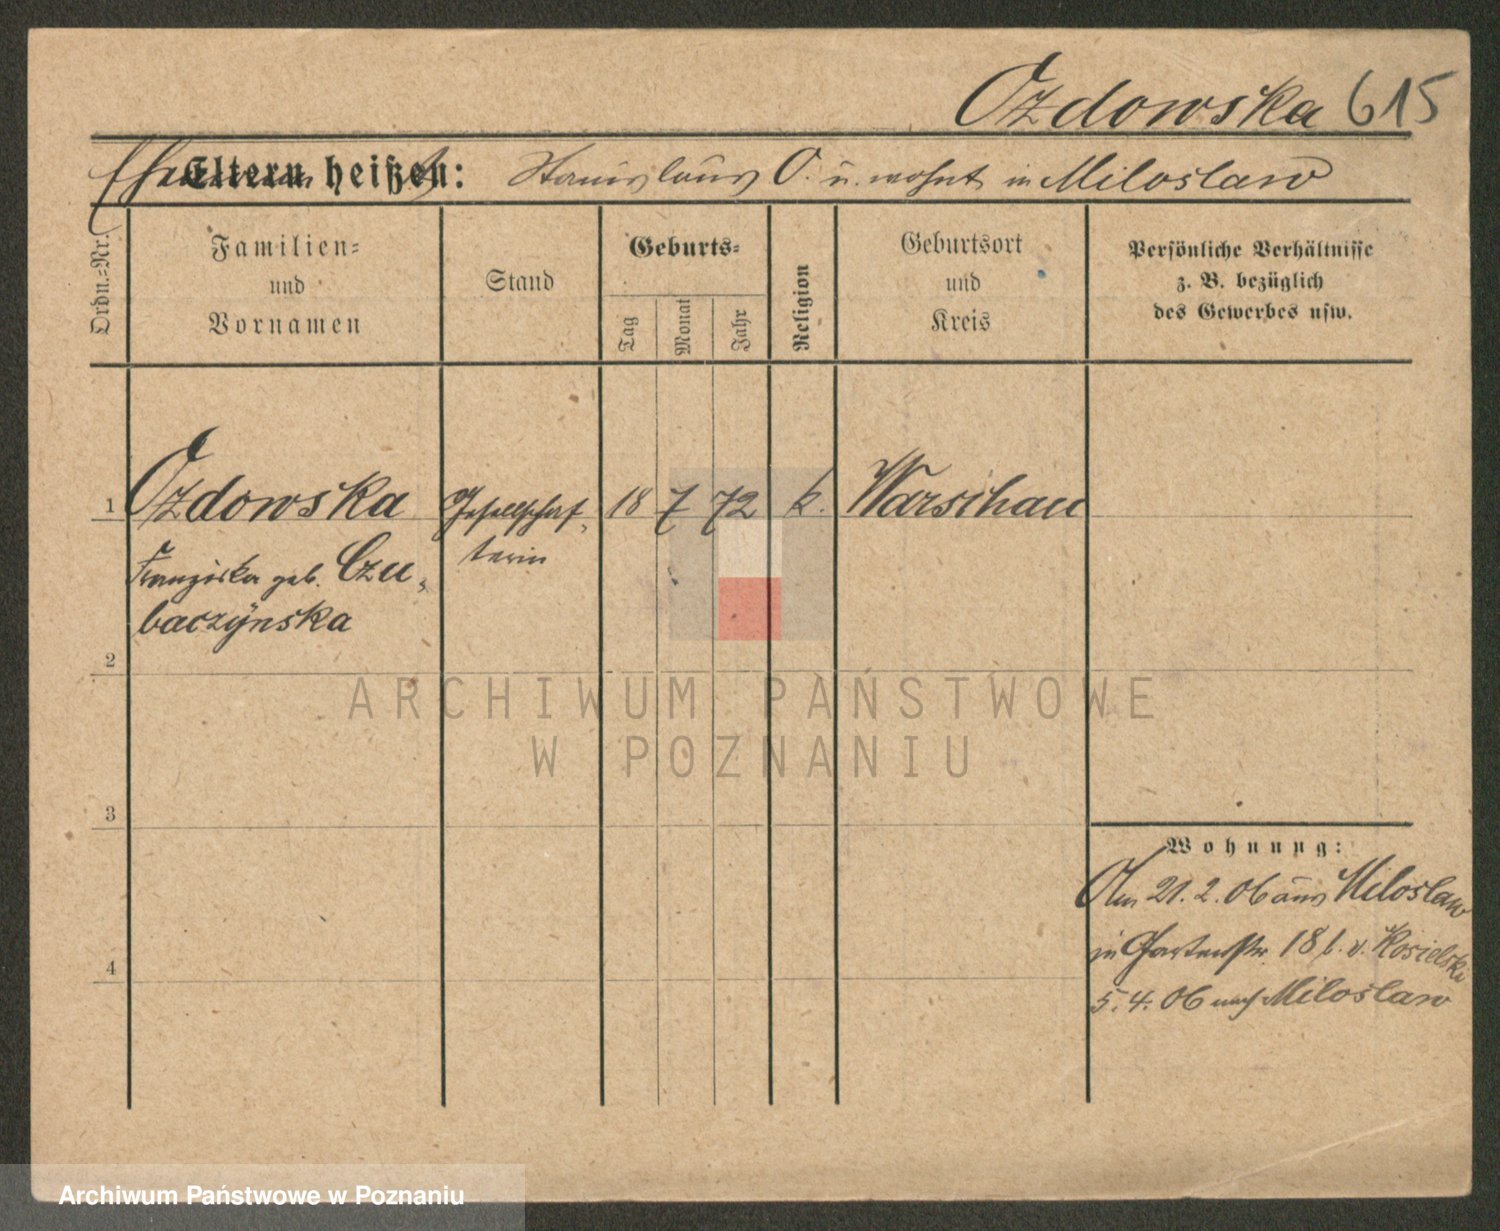 Ozdowska 615
Eltern heißen: Stanislaus O. u. wohnt in Miloslaw
Ordn.=Nr.
Familien=
und
Vornamen
Stand
Geburts=
Tag
Monat
Jahr
Religion
Geburtsort
und
Kreis
Persönliche Verhältnisse
z. B. bezüglich
des Gewerbes usw.
1 Ozdowska Gesellschaf- 18 7 72 k. Warschau
terin
Franziska geb. Czu-
baczynska
2
ARCHIWUM PAŃSTWOWE
W POZNANIU
3
Wohnung:
Am 21. 2. 06 aus Miloslaw
in Gartenstr. 18 b. v. Kosielski
4
5. 4. 06 nach Miloslaw
Archiwum Państwowe w Poznaniu